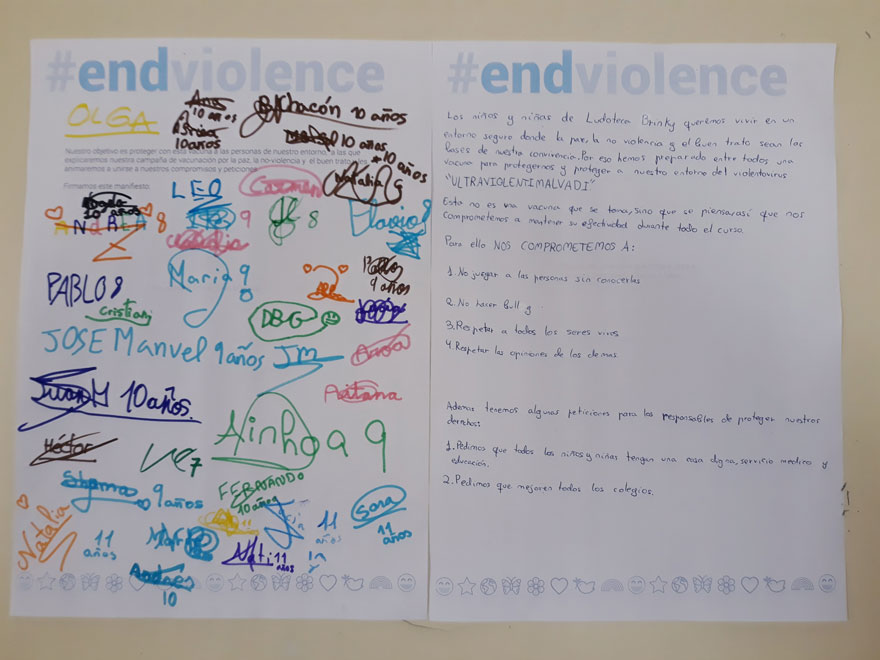 #endviolence
OLGA
10 años
Chacón 10 años
10 años
10 años
10 años
Nuestro objetivo es proteger con esta vacuna a las personas de nuestro entorno, a las que
explicaremos nuestra campaña de vacunación por la paz, la no-violencia y el buen trato
animaremos a unirse a nuestros compromisos y peticiones
Firmamos este manifiesto
Natalia 9
LEO
Carmen
10 años
ANDREA 8
9
8
Flavio 8
PABLO 8
Maria 9
9 años
Cristian
DBG
JOSE Manuel 9 años JM
Juan M 10 años.
Aitana
Ainhoa 9
Héctor
7
9 años
FERNANDO
10 años
Natalia
11
años
11
11
años
Sara
11
años
Nati 11
años
Andres
10
#endviolence
Los niños y niñas de Ludoteca Brinky queremos vivir en un
entorno seguro donde la paz, la no violencia y el buen trato sean las
bases de nuestra convivencia. Por eso hemos preparado entre todos una
vacuna para protegernos y proteger a nuestro entorno del violentovirus
"ULTRAVIOLENTIMALVADI"
Esta no es una vacuna que se toma, sino que se piensa, así que nos
comprometemos a mantener su efectividad durante todo el curso.
Para ello NOS COMPROMETEMOS A:
1. No juzgar a las personas sin conocerlas
2. No hacer Bull g.
3. Respetar a todos los seres vivos
4. Respetar las opiniones de los demas.
Ademas tenemos algunas peticiones para los responsables de proteger nuestros
derechos:
1. Pedimos que todos los niños y niñas tengan una casa digna, servicio medico y
educación.
2. Pedimos que mejoren todos los colegios.